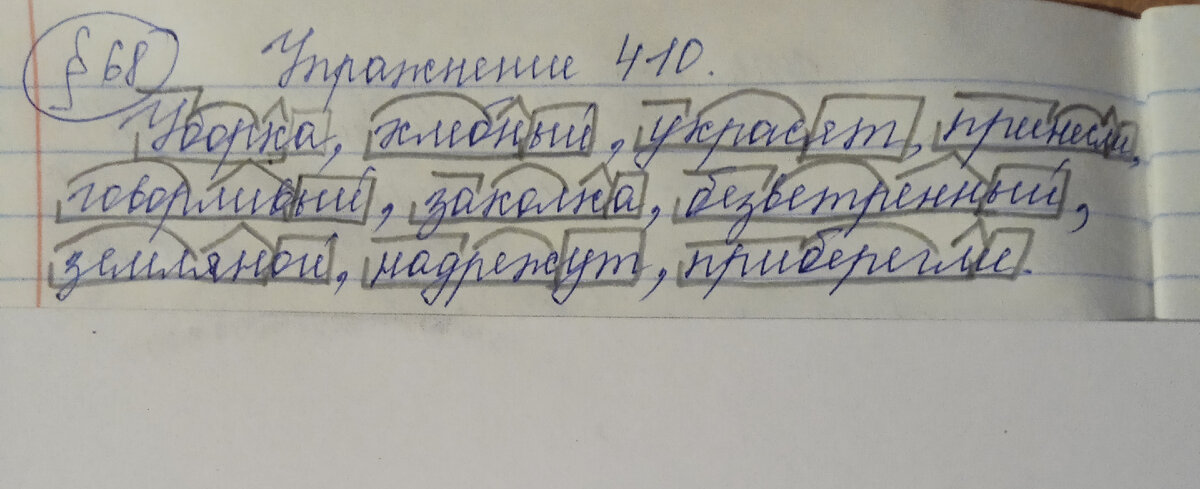 § 68 Упражнение 410.
Уборка, хлебный, украсят, принесли,
говорливый, заколка, безветренный,
земляной, надрежут, приберегли.